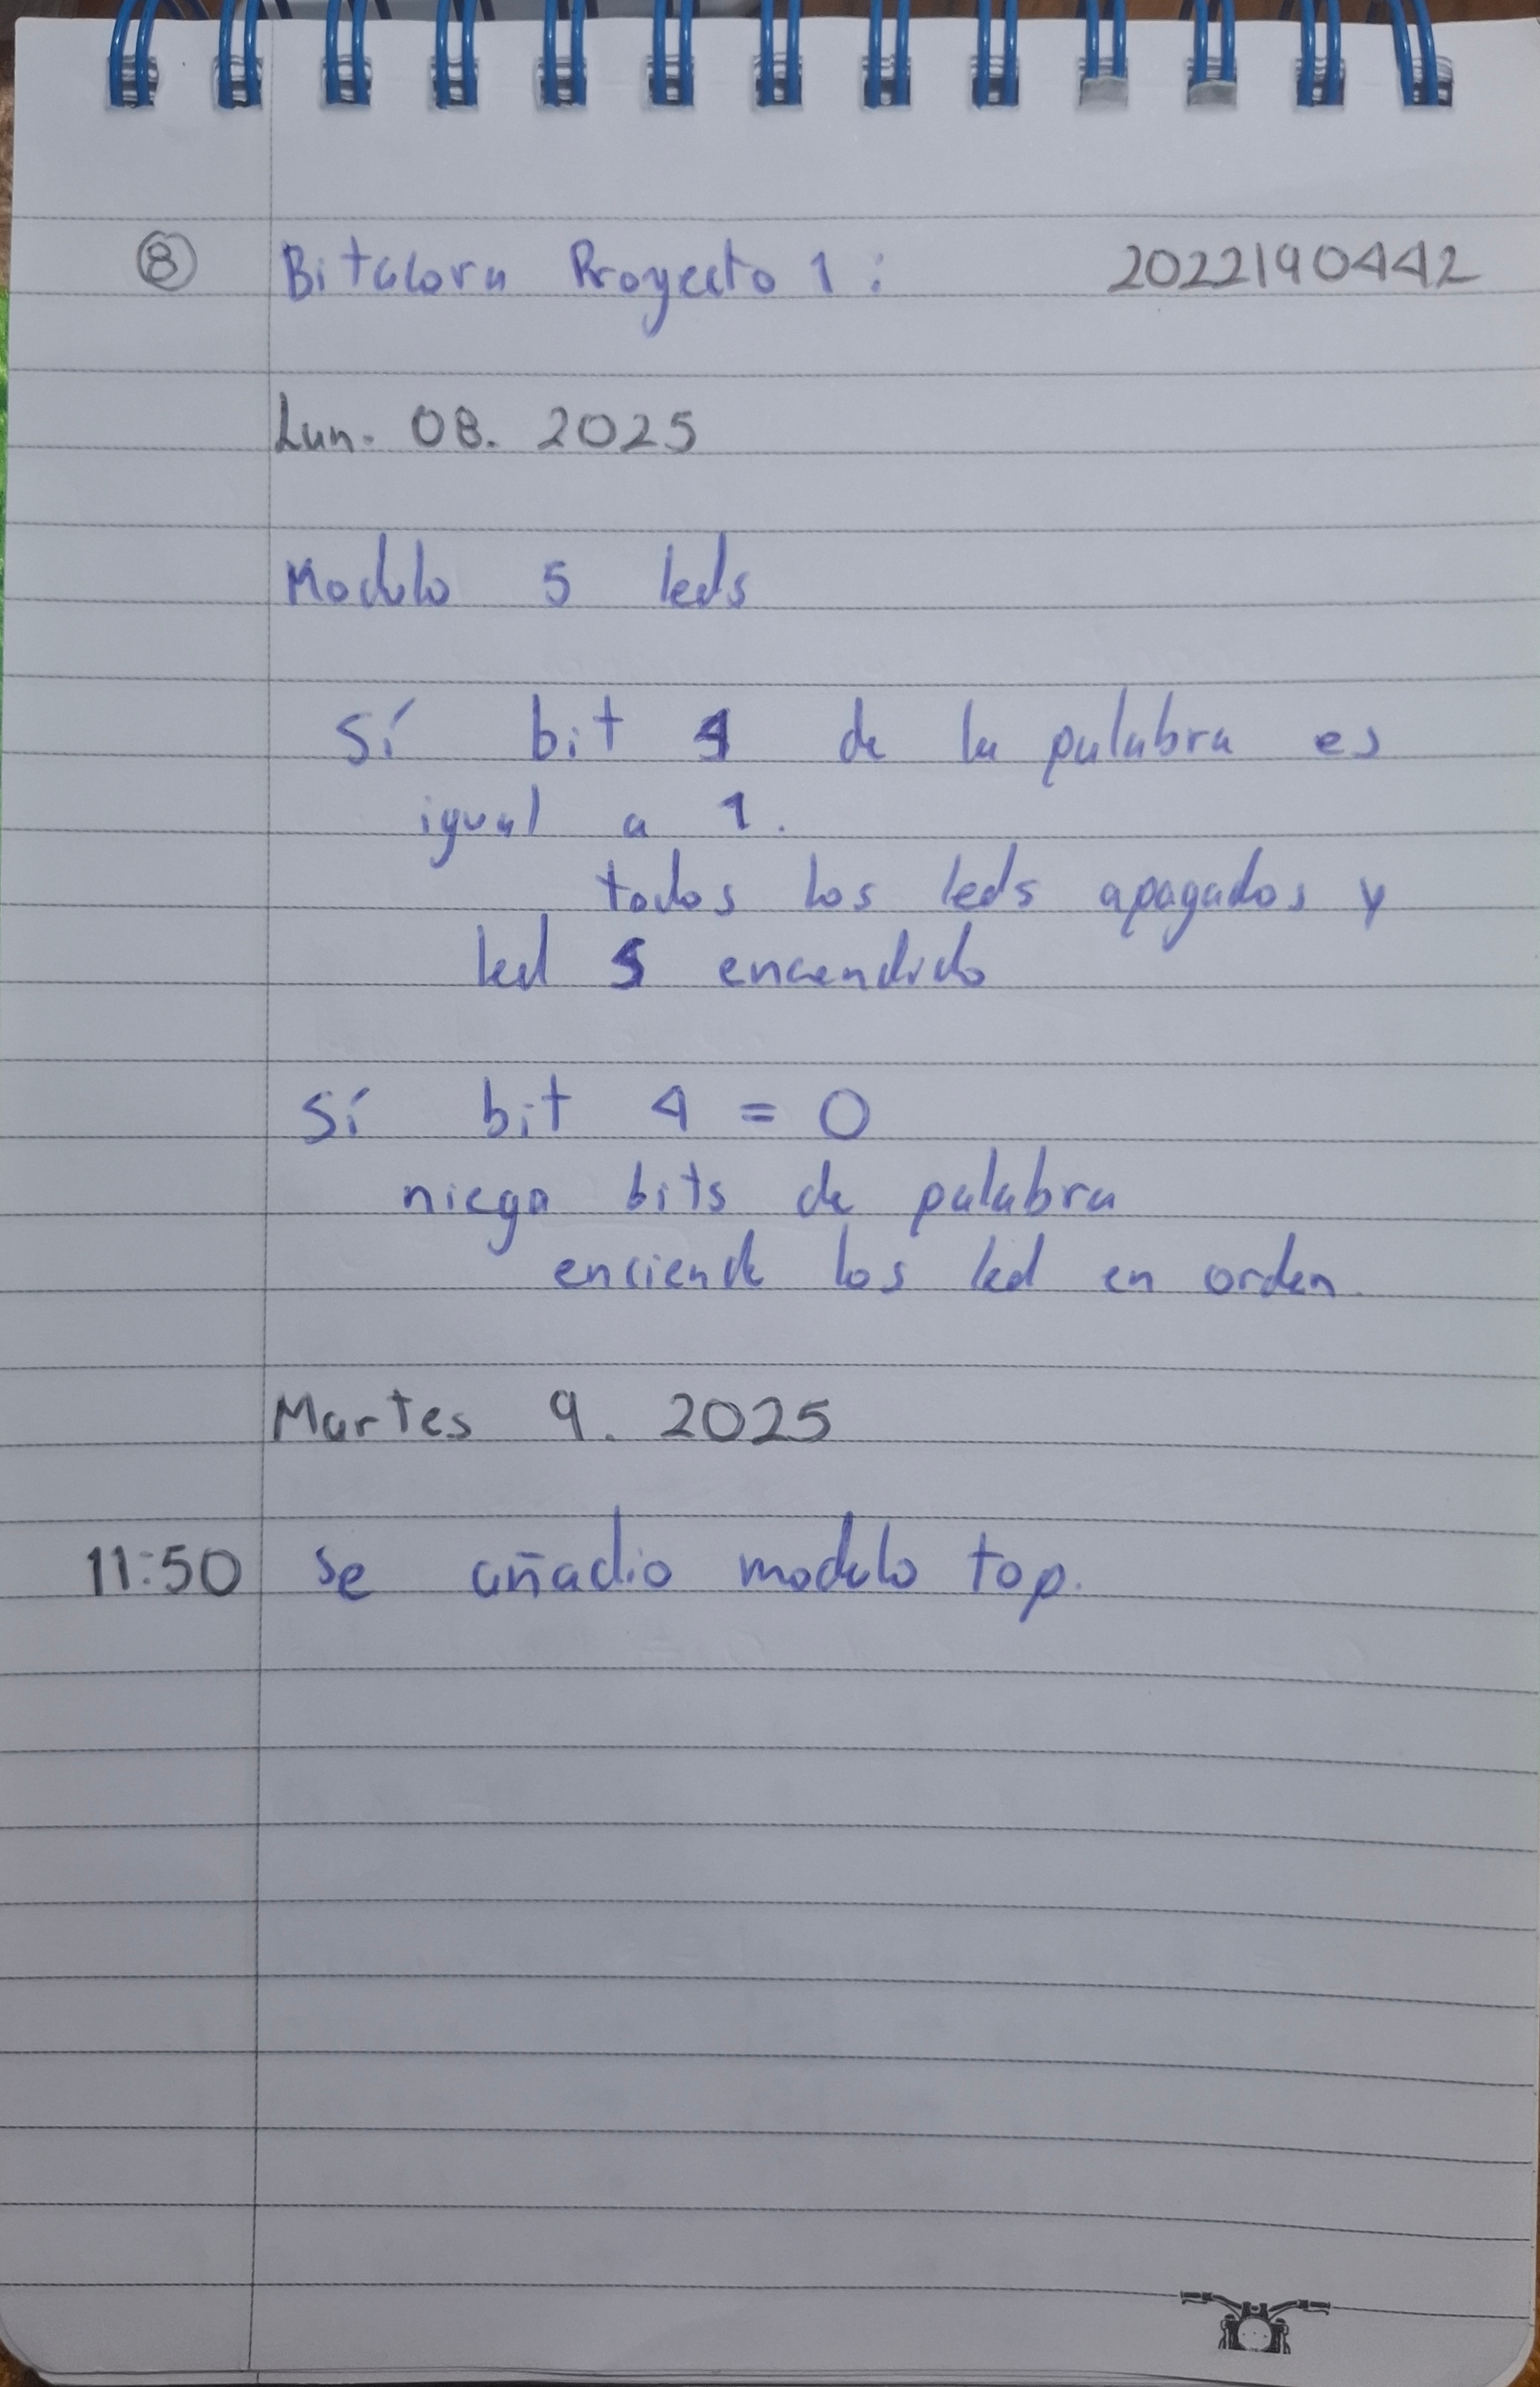 ⑧ Bitacora Proyecto 1: 2022190442
Lun. 08. 2025
Modulo 5 leds
Sí bit 4 de la palabra es
igual a 1.
todos los leds apagados y
led 5 encendido
Sí bit 4 = 0
niega bits de palabra
enciende los led en orden.
Martes 9. 2025
11:50 se añadio modulo top.